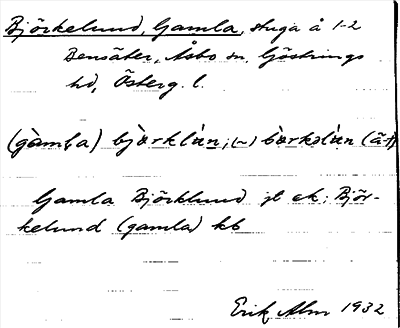 Björkelund, Gamla, stuga å 1-2
Bensäter, Åsbo sn, Göstrings
hd, Österg. l.
(gàmla) bjàrklùn; (~) bàrkəlùn (ä-f)
Gamla Björklund jt ek; Björ-
kelund (gamla) kb
Erik Alm 1932